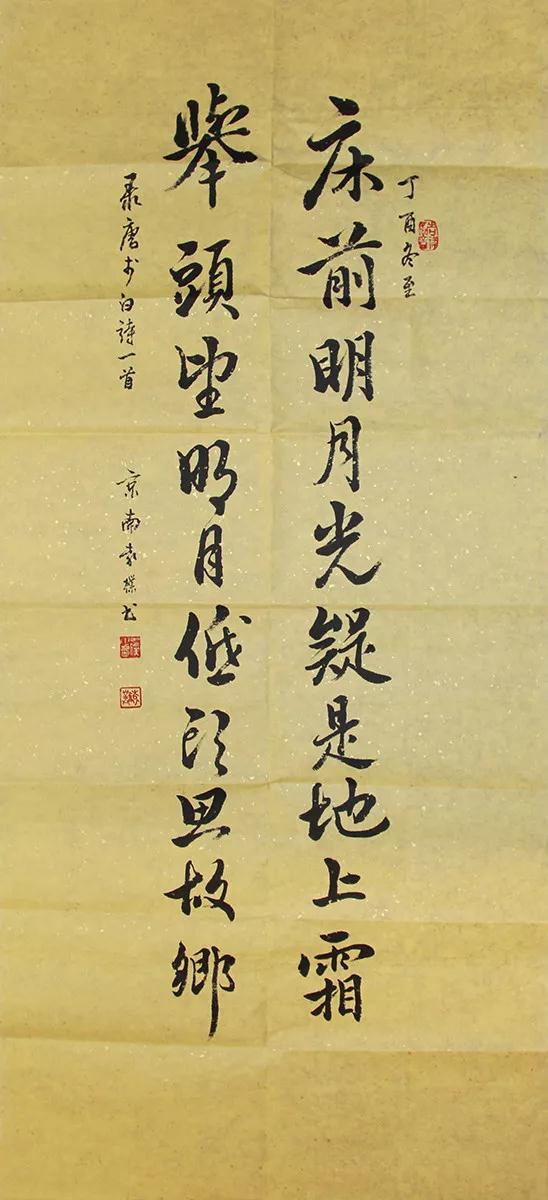 丁酉冬至
床前明月光疑是地上霜
舉頭望明月低頭思故鄉
录唐李白詩一首 京南袁樸书